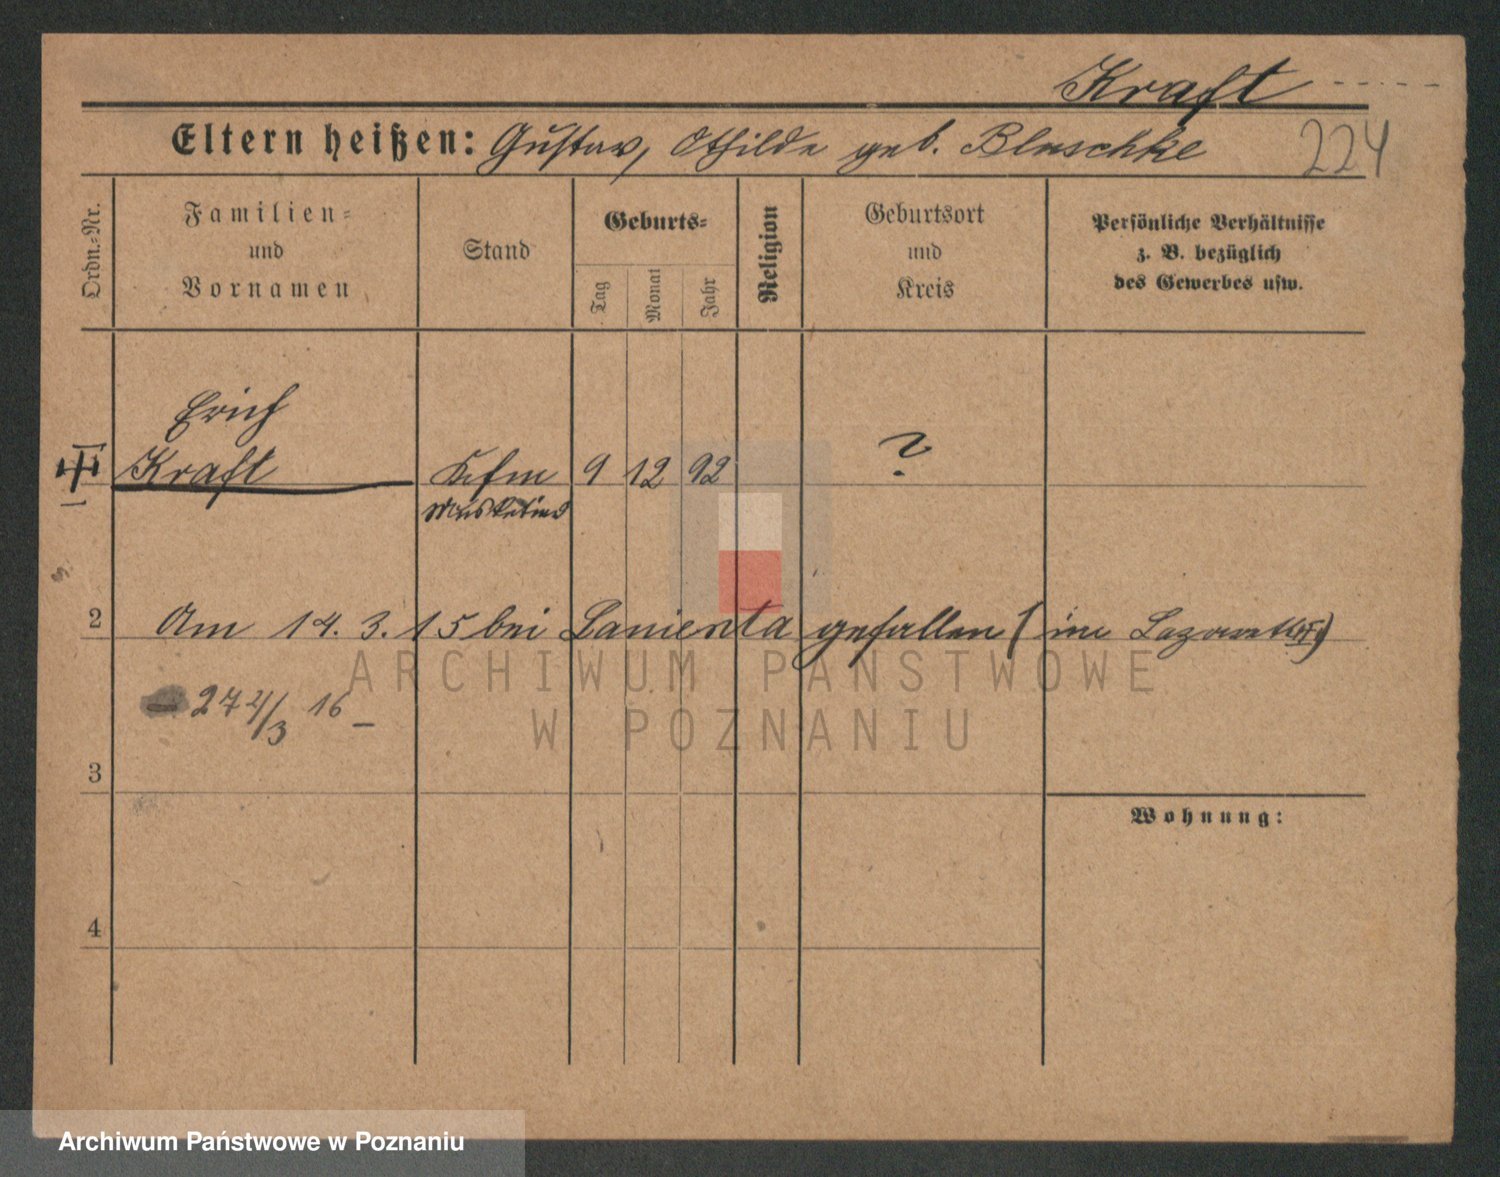 Kraft
Eltern heißen: Gustav, Othilde geb. Bleschke 224
Ordn.=Nr.
Familien=
und
Vornamen
Stand
Geburts=
Tag
Monat
Jahr
Religion
Geburtsort
und
Kreis
Persönliche Verhältnisse
z. B. bezüglich
des Gewerbes usw.
Erich
Kraft Kfm 9 12 92 ?
Musketier
2 Am 14. 3. 15 bei Lanienta gefallen (im Lazarett)
274/3 16
3
Wohnung:
4
ARCHIWUM PAŃSTWOWE
W POZNANIU
Archiwum Państwowe w Poznaniu